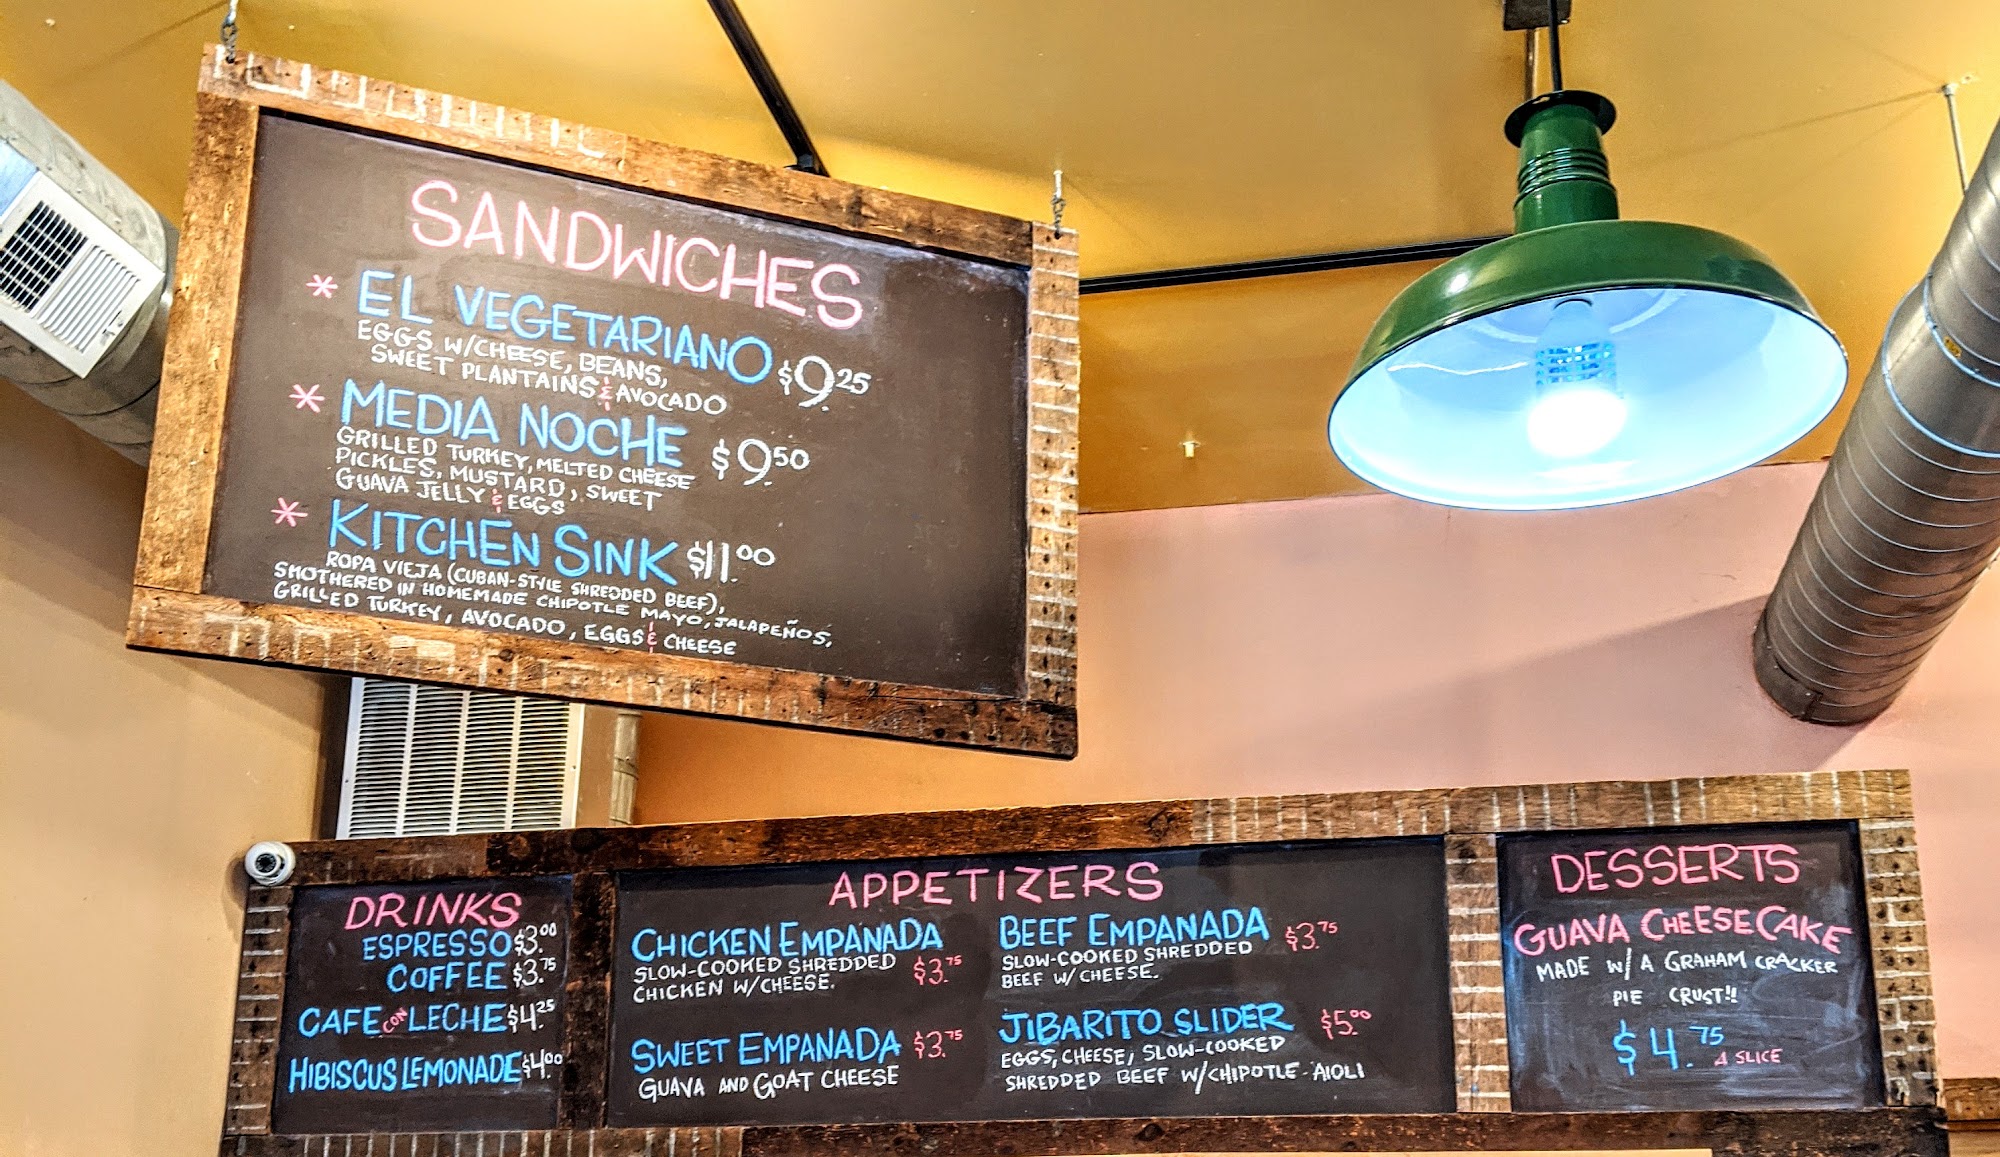 SANDWICHES
* EL VEGETARIANO $9.25
EGGS W/CHEESE, BEANS,
SWEET PLANTAINS & AVOCADO
* MEDIA NOCHE $9.50
GRILLED TURKEY, MELTED CHEESE
PICKLES, MUSTARD, SWEET
GUAVA JELLY & EGGS
* KITCHEN SINK $11.00
ROPA VIEJA (CUBAN-STYLE SHREDDED BEEF),
SMOTHERED IN HOMEMADE CHIPOTLE MAYO, JALAPEÑOS,
GRILLED TURKEY, AVOCADO, EGGS & CHEESE
DRINKS
ESPRESSO $3.00
COFFEE $3.75
CAFE CON LECHE $4.25
HIBISCUS LEMONADE $4.00
APPETIZERS
CHICKEN EMPANADA
SLOW-COOKED SHREDDED $3.75
CHICKEN W/CHEESE.
SWEET EMPANADA $3.75
GUAVA AND GOAT CHEESE
BEEF EMPANADA $3.75
SLOW-COOKED SHREDDED
BEEF W/CHEESE.
JIBARITO SLIDER $5.00
EGGS, CHEESE, SLOW-COOKED
SHREDDED BEEF W/CHIPOTLE-AIOLI
DESSERTS
GUAVA CHEESECAKE
MADE W/ A GRAHAM CRACKER
PIE CRUST!!
$4.75 A SLICE